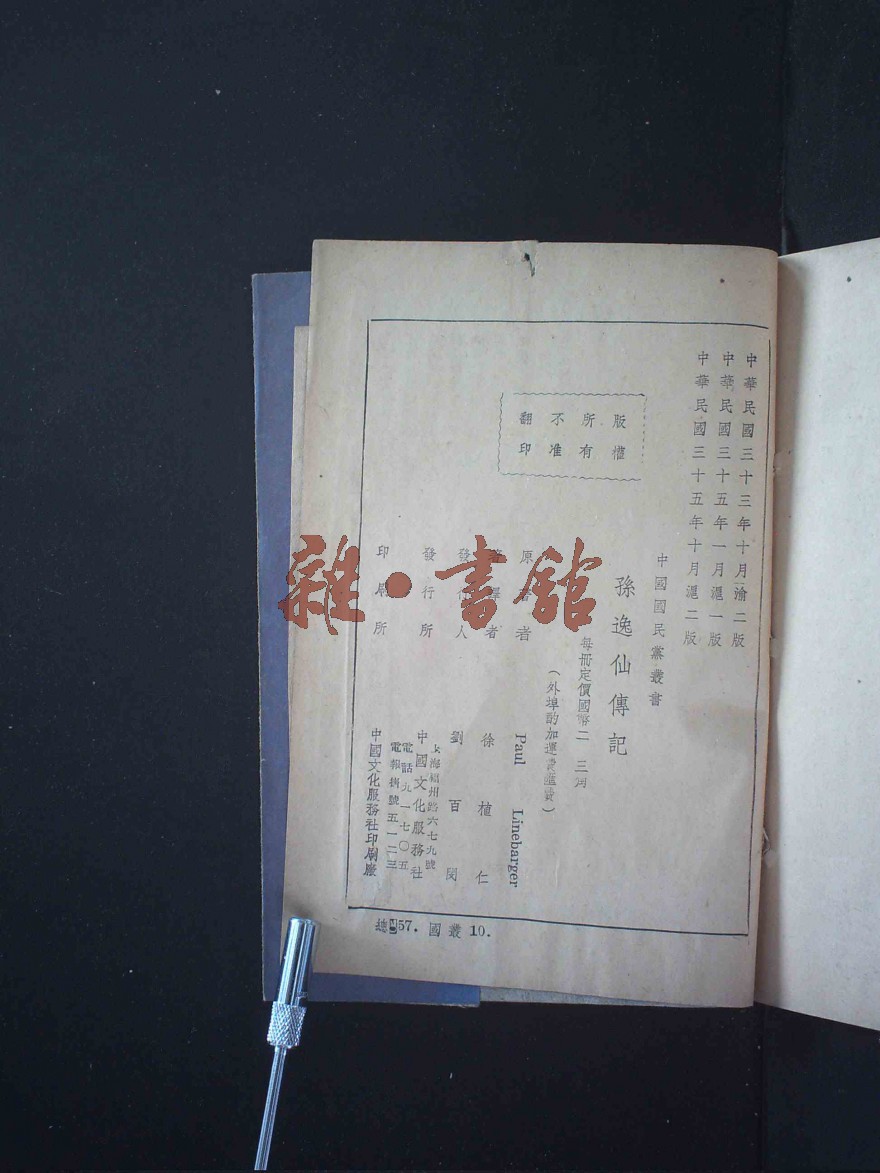 中華民國三十三年十月渝二版
中華民國三十五年一月滬一版
中華民國三十五年十月滬二版
中國國民黨叢書
孫逸仙傳記
每冊定價國幣二 三
（外埠酌加運費匯費）
版權
所有
不准
翻印
原著者 Paul Linebarger
譯者 徐植仁
發行人 劉百閔
發行所
上海福州路六七九號
中國文化服務社
電話九一七〇五
電報掛號五一二三
印刷所 中國文化服務社印刷廠
總 57. 國叢 10.
雜·書館